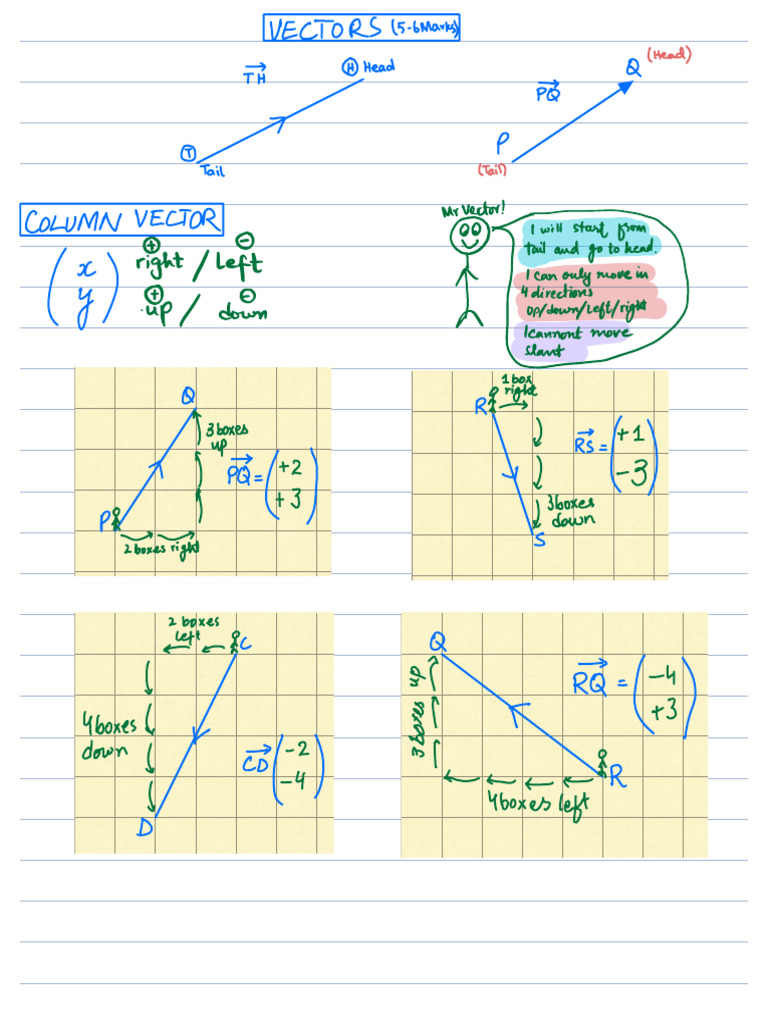 VECTORS (5-6 Marks)
TH
H Head
T
Tail
PQ
Q (Head)
P
(Tail)
COLUMN VECTOR
( x y )
+ right / left -
+ up / down -
Mr Vector!
I will start from
tail and go to head.
I can only move in
4 directions
up/down/left/right
I cannont move
slant
Q
3 boxes
up
PQ = ( +2 +3 )
P
2 boxes right
1 box
right
R
RS = ( +1 -3 )
3 boxes
down
S
2 boxes
left
C
4 boxes
down
CD ( -2 -4 )
D
Q
3 boxes up
RQ = ( -4 +3 )
R
4 boxes left